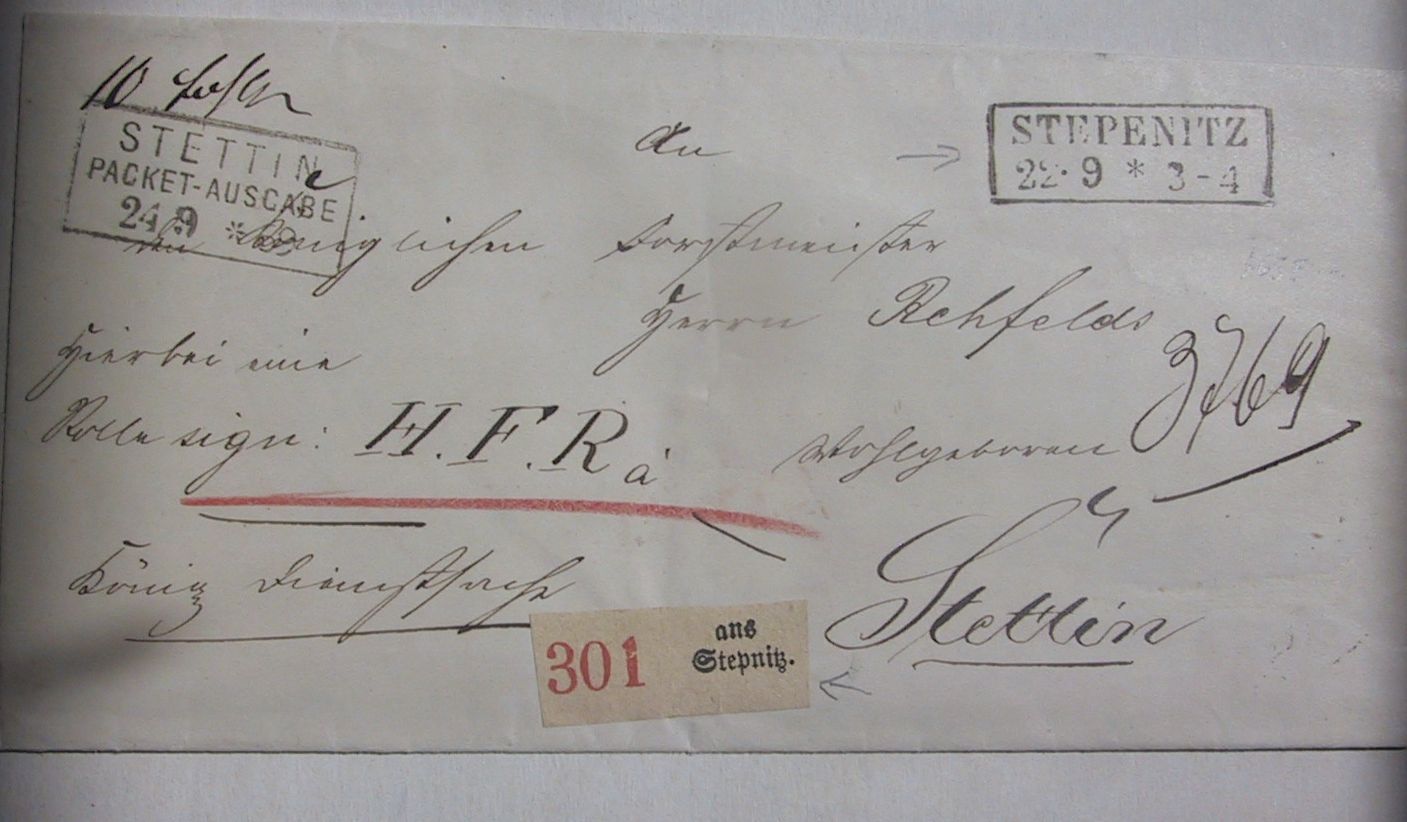 STETTIN
PACKET-AUSGABE
24 9 *
STEPENITZ
22·9 * 3-4
An
den Königlichen Forstmeister
Herrn Rehfeldt
3769
Wohlgeboren
Stettin
Hierbei eine
Rolle sign: H.F.R. à
König Dienstsache
301
aus
Stepnitz.